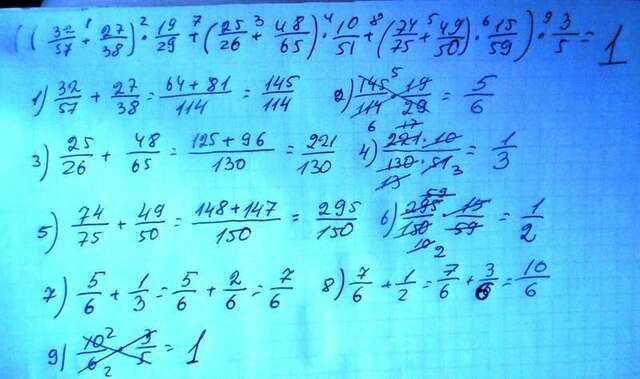 ((32/57 + 27/38) · 19/29 + (25/26 + 48/65) · 10/51 + (74/75 + 49/50) · 15/59) · 3/5 = 1
1) 32/57 + 27/38 = 64+81/114 = 145/114 2) 145/114 · 19/29 = 5/6
3) 25/26 + 48/65 = 125+96/130 = 221/130 4) 221·10/130·51 = 1/3
5) 74/75 + 49/50 = 148+147/150 = 295/150 6) 295/150 · 15/59 = 1/2
7) 5/6 + 1/3 = 5/6 + 2/6 = 7/6 8) 7/6 + 1/2 = 7/6 + 3/6 = 10/6
9) 10/6 · 3/5 = 1